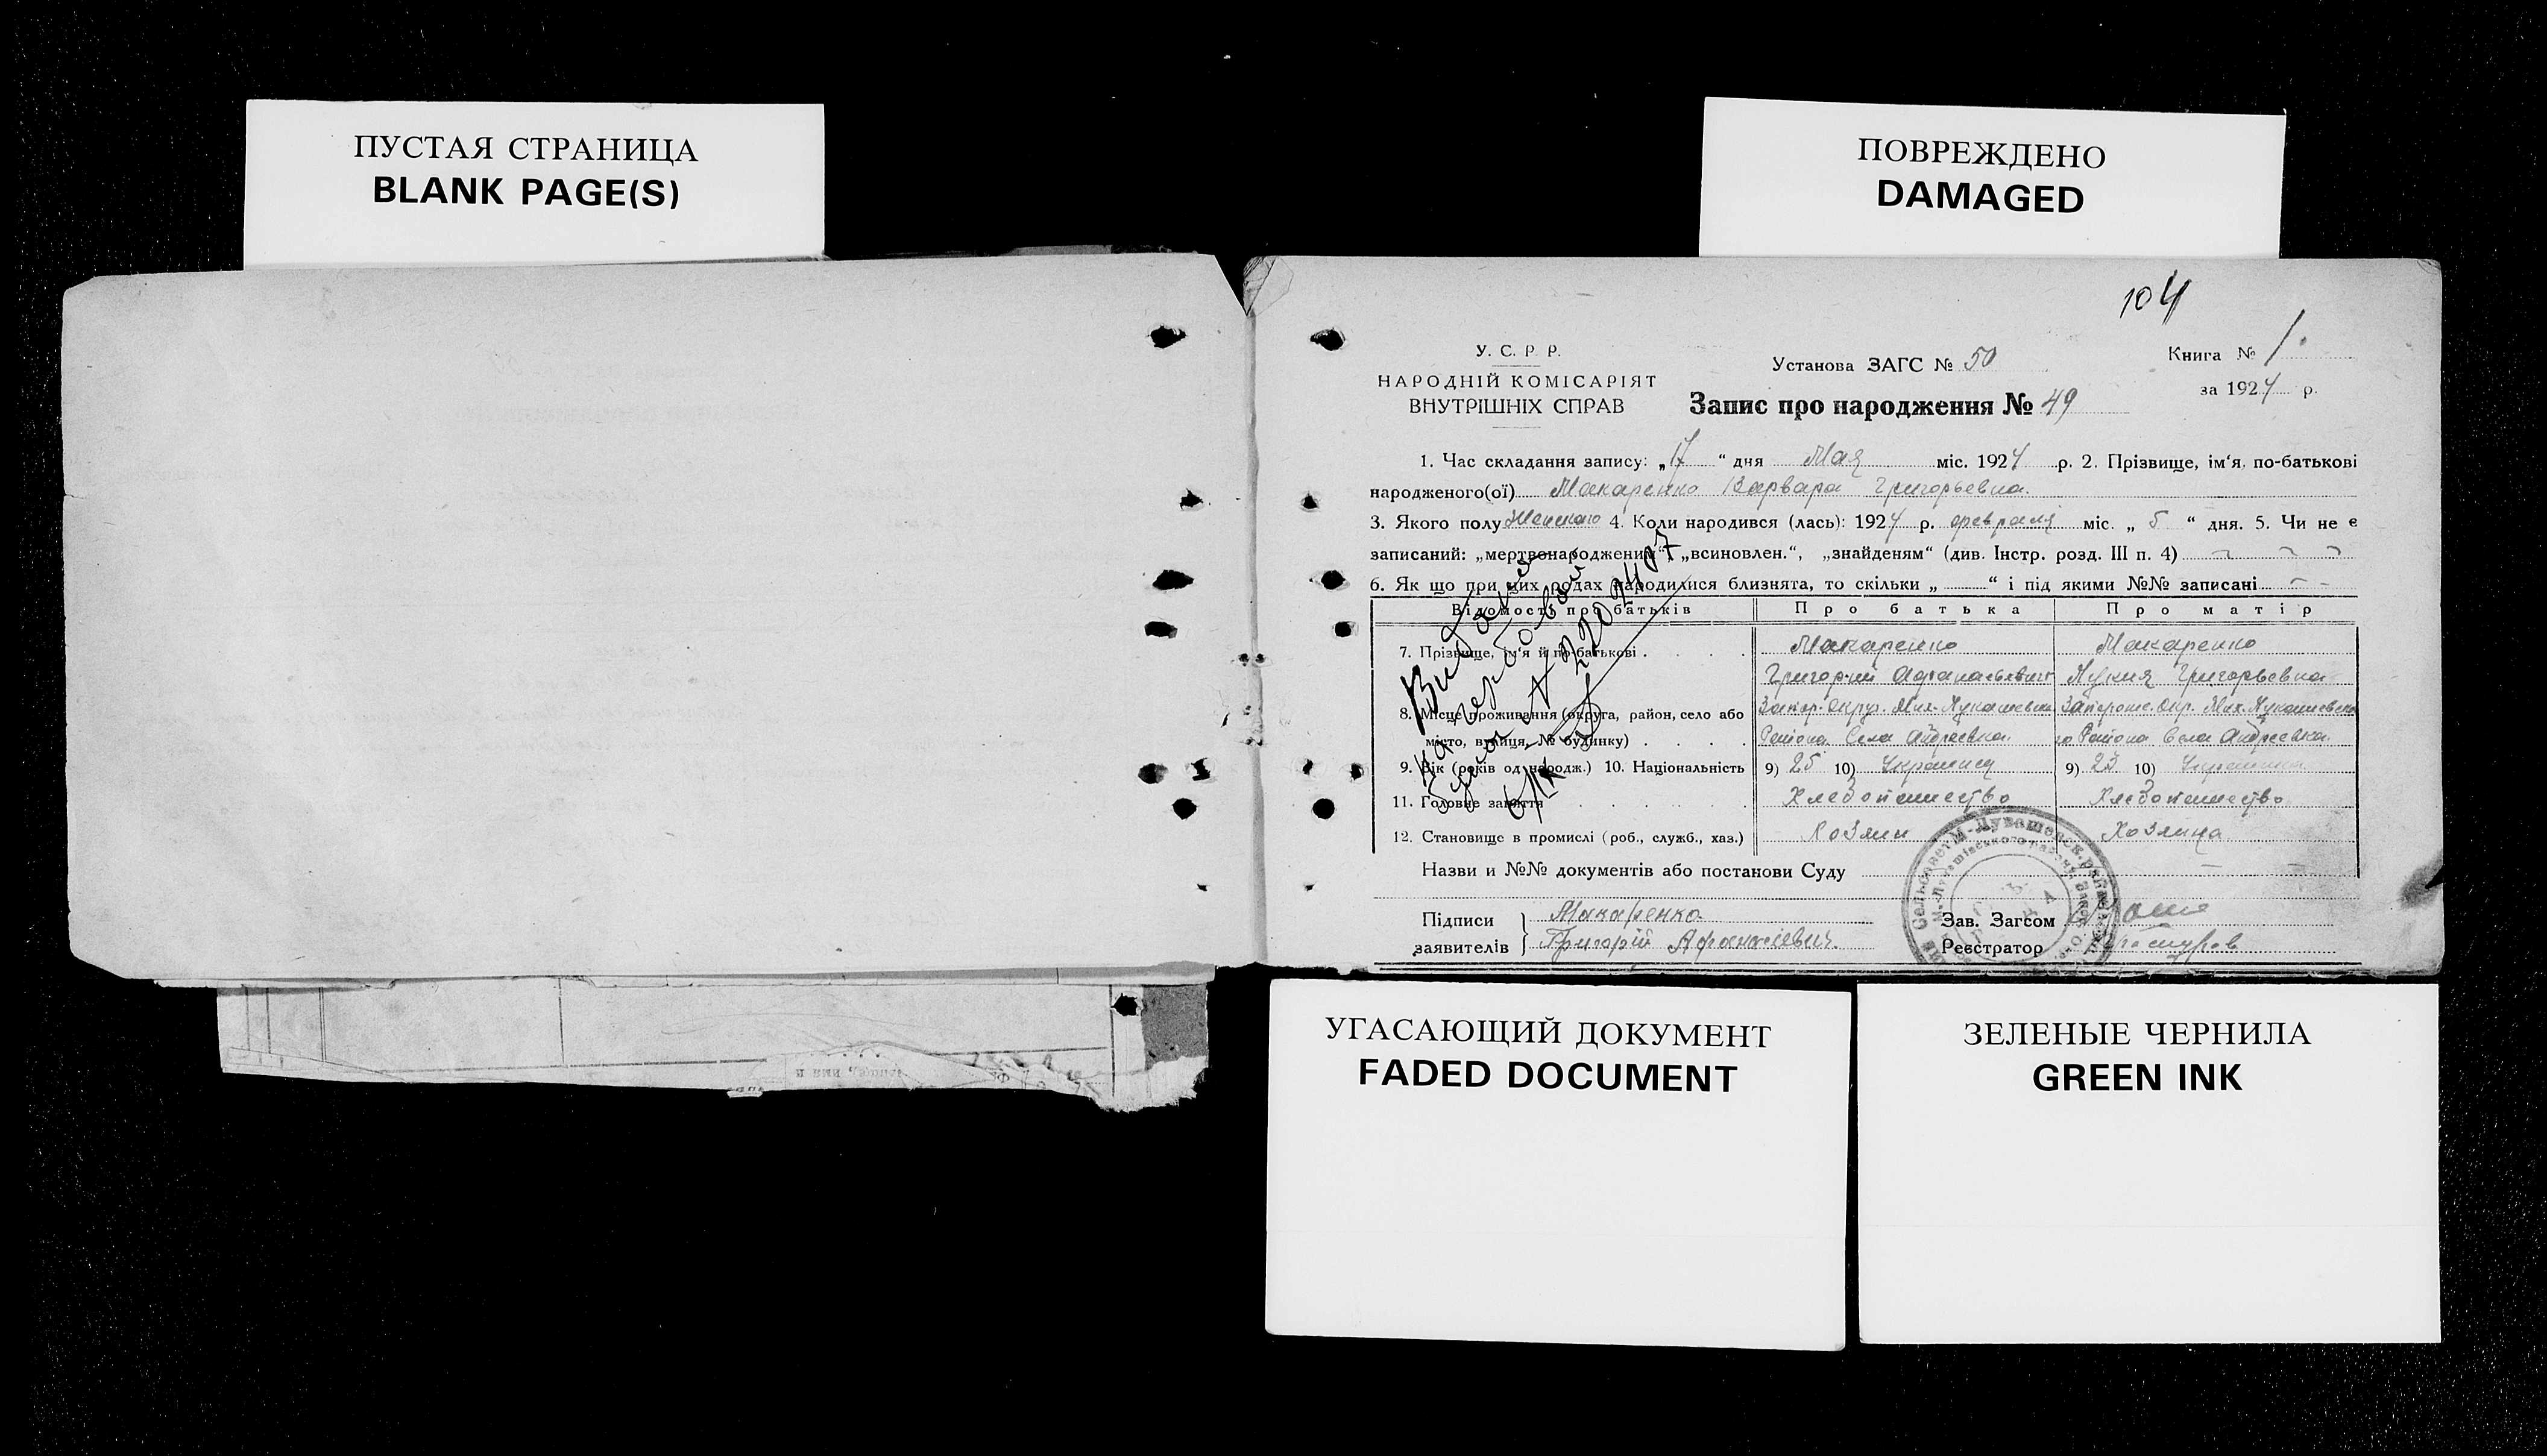 ПУСТАЯ СТРАНИЦА
BLANK PAGE(S)
ПОВРЕЖДЕНО
DAMAGED
104
У. С. Р. Р.
НАРОДНІЙ КОМІСАРІЯТ
ВНУТРІШНІХ СПРАВ
Установа ЗАГС № 50
Запис про народження № 49
Книга № 1.
за 1924 р.
1. Час складання запису: „17“ дня Мая міс. 1924 р. 2. Прізвище, ім'я, по-батькові
народженого(ої) Макаренко Варвара Григорьевна.
3. Якого полу Женского 4. Коли народився (лась): 1924 р. февраля міс. „ 5 “ дня. 5. Чи не є
записаний: „мертвонароджений“, „всиновлен.“, „знайденям“ (див. Інстр. розд. III п. 4)
6. Як що при цих родах народилися близнята, то скільки „ “ і під якими №№ записані
Відомості про батьків Про батька Про матір
7. Прізвище, ім'я й по-батькові Макаренко Макаренко
Григорий Афанасьевич Григорьевна
8. Місце проживання (округа, район, село або
місто, вулиця, № будинку) Района Села Андреевка Района Села Андреевка
9. Вік (років од народж.) 10. Національність 9) 25 10) 9) 23 10)
11. Головне заняття Хлебопашество Хлебопашество
12. Становище в промислі (роб., служб., хаз.) Хозяин
Назви и №№ документів або постанови Суду
Підписи
заявителів
Макаренко
Григорій
Зав. Загсом
Реєстратор
УГАСАЮЩИЙ ДОКУМЕНТ
FADED DOCUMENT
ЗЕЛЕНЫЕ ЧЕРНИЛА
GREEN INK